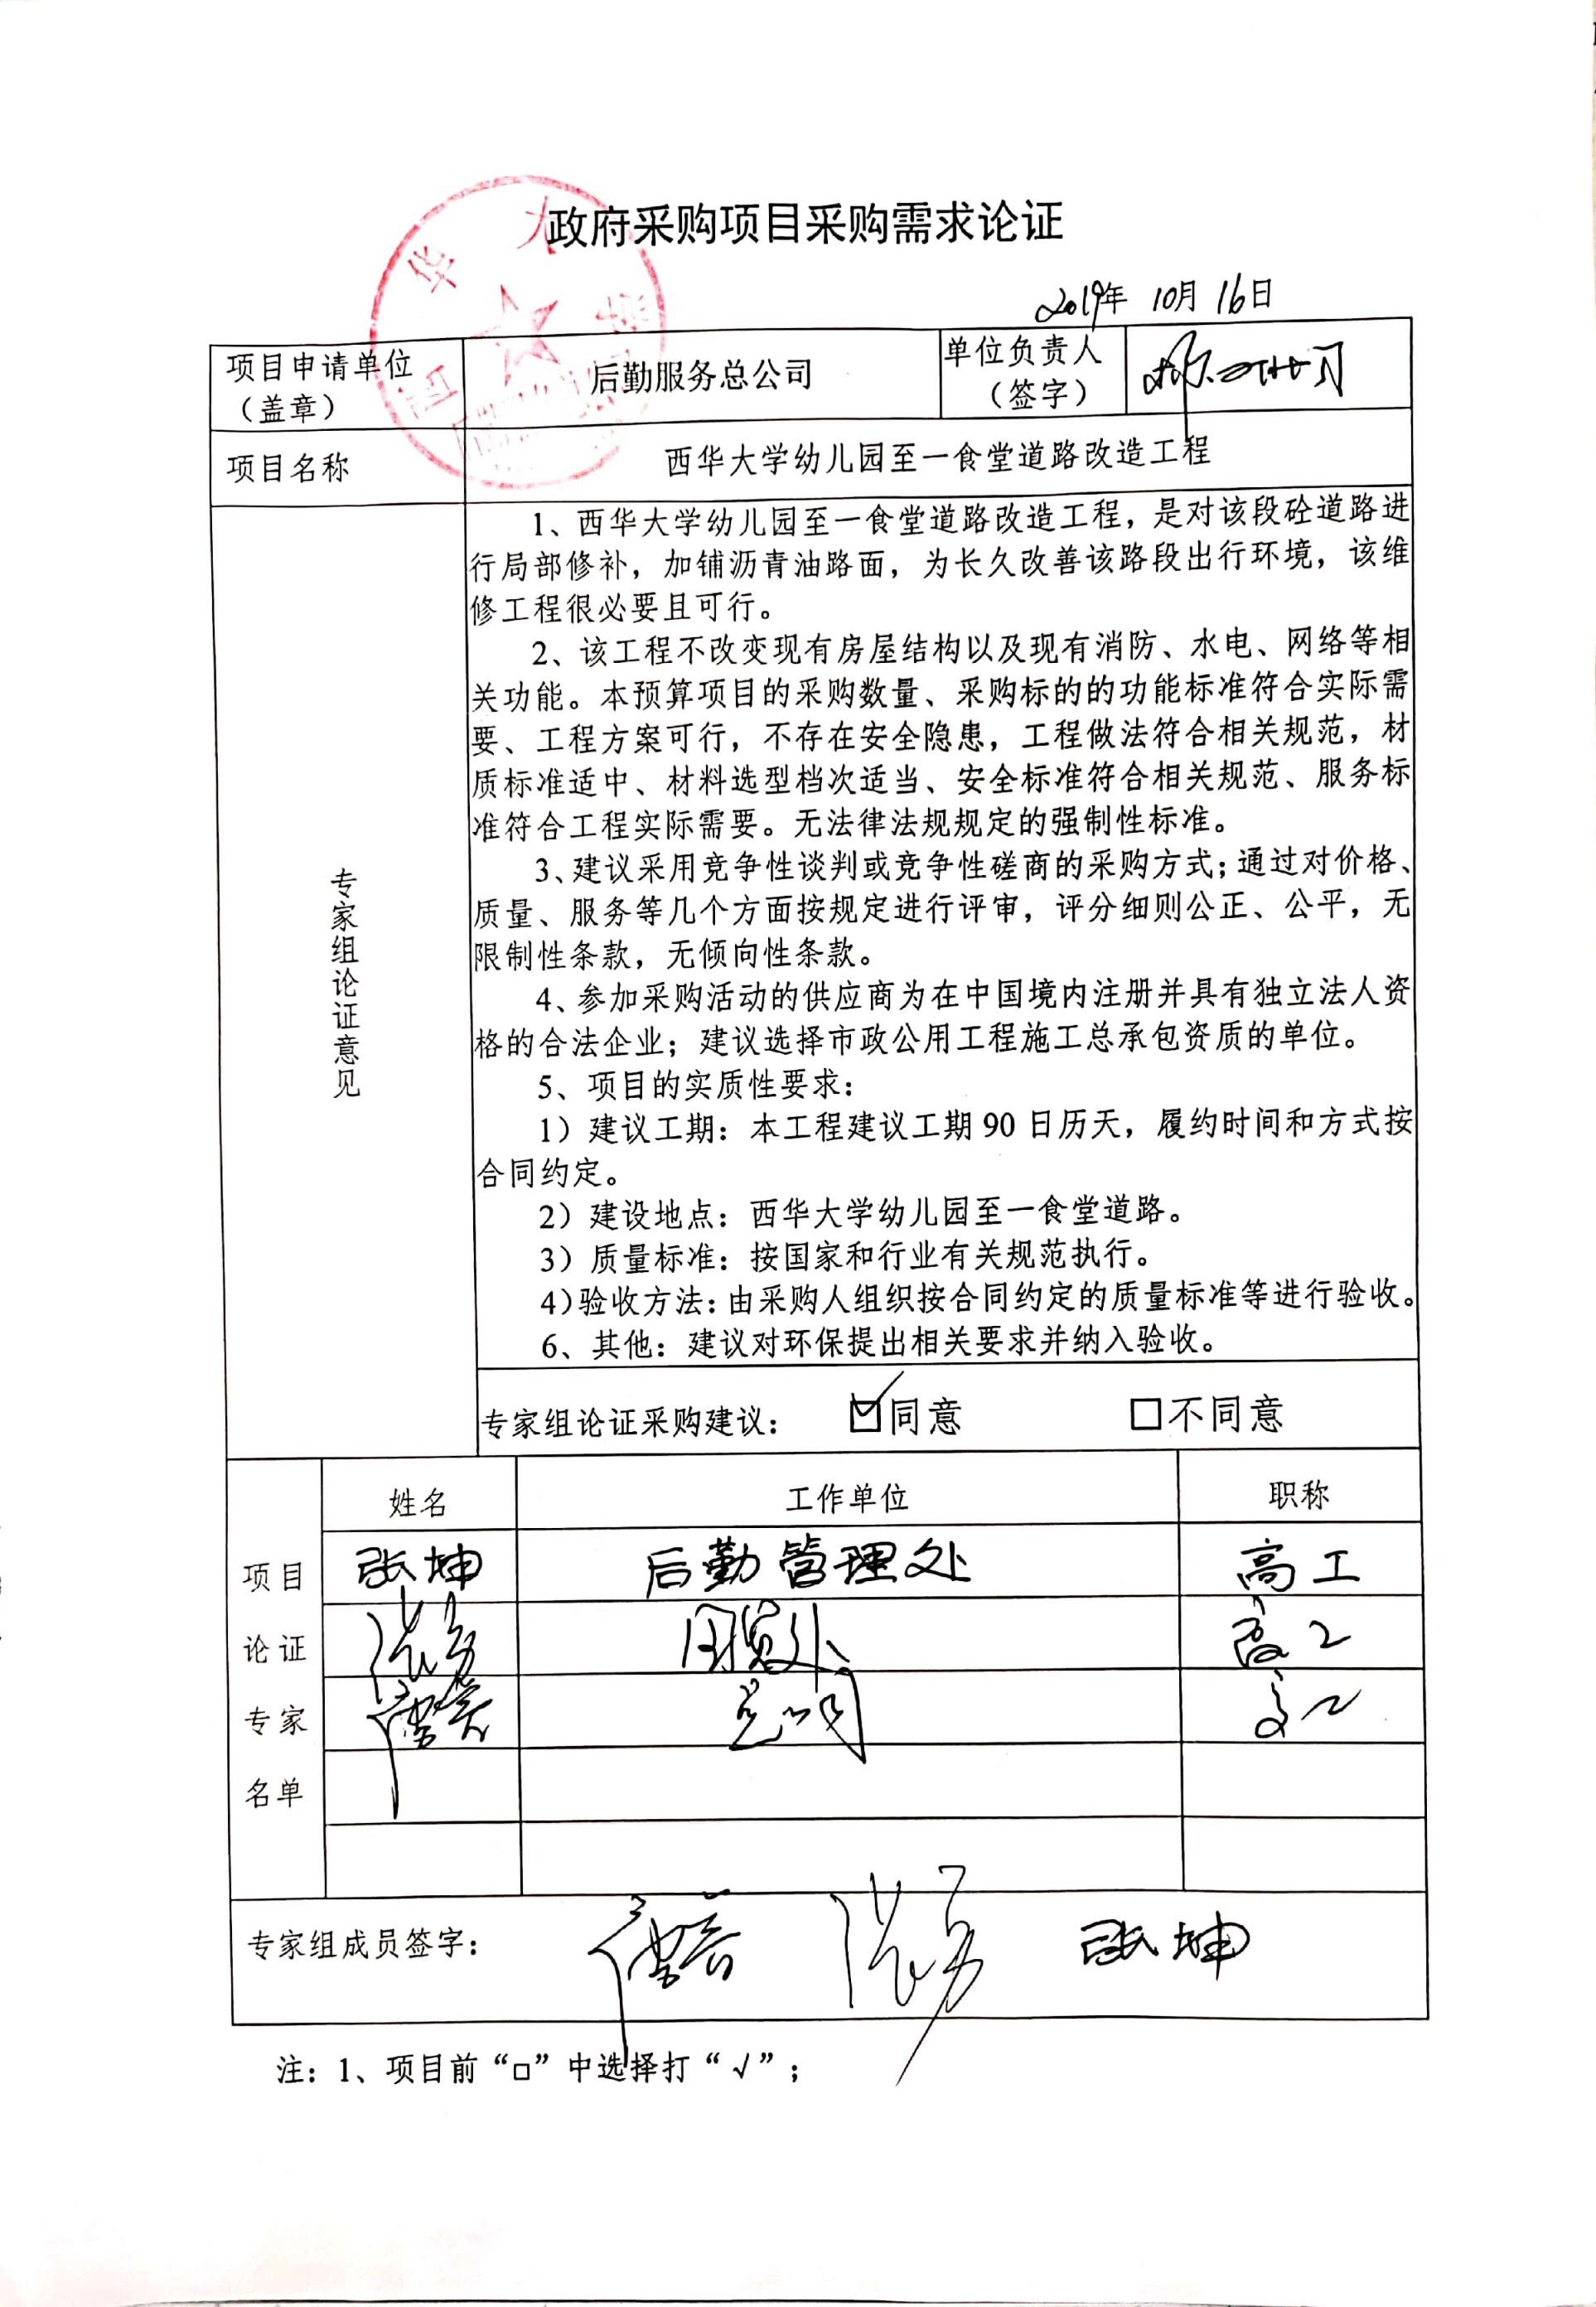 政府采购项目采购需求论证
2019年 10月 16日
项目申请单位
（盖章）
后勤服务总公司
单位负责人
（签字）
项目名称
西华大学幼儿园至一食堂道路改造工程
专家组论证意见
1、西华大学幼儿园至一食堂道路改造工程，是对该段砼道路进
行局部修补，加铺沥青油路面，为长久改善该路段出行环境，该维
修工程很必要且可行。
2、该工程不改变现有房屋结构以及现有消防、水电、网络等相
关功能。本预算项目的采购数量、采购标的的功能标准符合实际需
要、工程方案可行，不存在安全隐患，工程做法符合相关规范，材
质标准适中、材料选型档次适当、安全标准符合相关规范、服务标
准符合工程实际需要。无法律法规规定的强制性标准。
3、建议采用竞争性谈判或竞争性磋商的采购方式；通过对价格、
质量、服务等几个方面按规定进行评审，评分细则公正、公平，无
限制性条款，无倾向性条款。
4、参加采购活动的供应商为在中国境内注册并具有独立法人资
格的合法企业；建议选择市政公用工程施工总承包资质的单位。
5、项目的实质性要求：
1）建议工期：本工程建议工期 90 日历天，履约时间和方式按
合同约定。
2）建设地点：西华大学幼儿园至一食堂道路。
3）质量标准：按国家和行业有关规范执行。
4）验收方法：由采购人组织按合同约定的质量标准等进行验收。
6、其他：建议对环保提出相关要求并纳入验收。
专家组论证采购建议： ☑同意 □不同意
项目
论证
专家
名单
姓名 工作单位 职称
张坤 后勤管理处 高工
高工
高工
专家组成员签字：
张坤
注：1、项目前“□”中选择打“√”；
西华大学